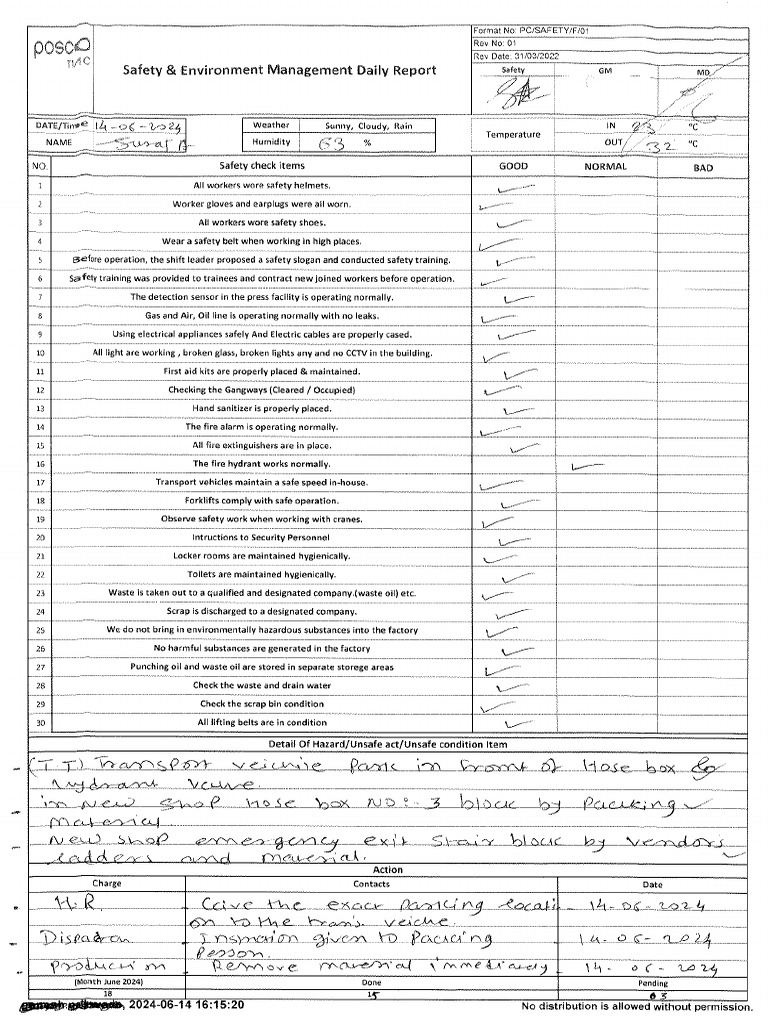 posco
TMC
Safety & Environment Management Daily Report
Format No: PC/SAFETY/F/01
Rev No: 01
Rev Date: 31/03/2022
Safety GM MD
DATE/Time 14-06-2024 Weather Sunny, Cloudy, Rain Temperature IN 23 °C
NAME Humidity 63 % OUT 32 °C
NO. Safety check items GOOD NORMAL BAD
1 All workers wore safety helmets. ✓
2 Worker gloves and earplugs were all worn. ✓
3 All workers wore safety shoes. ✓
4 Wear a safety belt when working in high places. ✓
5 Before operation, the shift leader proposed a safety slogan and conducted safety training. ✓
6 Safety training was provided to trainees and contract new joined workers before operation. ✓
7 The detection sensor in the press facility is operating normally. ✓
8 Gas and Air, Oil line is operating normally with no leaks. ✓
9 Using electrical appliances safely And Electric cables are properly cased. ✓
10 All light are working , broken glass, broken lights any and no CCTV in the building. ✓
11 First aid kits are properly placed & maintained. ✓
12 Checking the Gangways (Cleared / Occupied) ✓
13 Hand sanitizer is properly placed. ✓
14 The fire alarm is operating normally. ✓
15 All fire extinguishers are in place. ✓
16 The fire hydrant works normally. ✓
17 Transport vehicles maintain a safe speed in-house. ✓
18 Forklifts comply with safe operation. ✓
19 Observe safety work when working with cranes. ✓
20 Intructions to Security Personnel ✓
21 Locker rooms are maintained hygienically. ✓
22 Toilets are maintained hygienically. ✓
23 Waste is taken out to a qualified and designated company.(waste oil) etc. ✓
24 Scrap is discharged to a designated company. ✓
25 We do not bring in environmentally hazardous substances into the factory ✓
26 No harmful substances are generated in the factory ✓
27 Punching oil and waste oil are stored in separate storege areas ✓
28 Check the waste and drain water ✓
29 Check the scrap bin condition ✓
30 All lifting belts are in condition ✓
Detail Of Hazard/Unsafe act/Unsafe condition Item
- (T.T) Transport veichile Park in front of Hose box &
hydrant valve.
- in New shop Hose box NO:- 3 block by Packing
material.
- New shop emergency exit Stair block by vendors
ladders and material.
Action
Charge Contacts Date
- H.R Give the exact parking locati- 14-06-2024
on to the trans veiche.
- given to Packing 14-06-2024
Person.
- Production Remove material immediately 14-06-2024
(Month June 2024) Done Pending
18 15 03
2024-06-14 16:15:20
No distribution is allowed without permission.